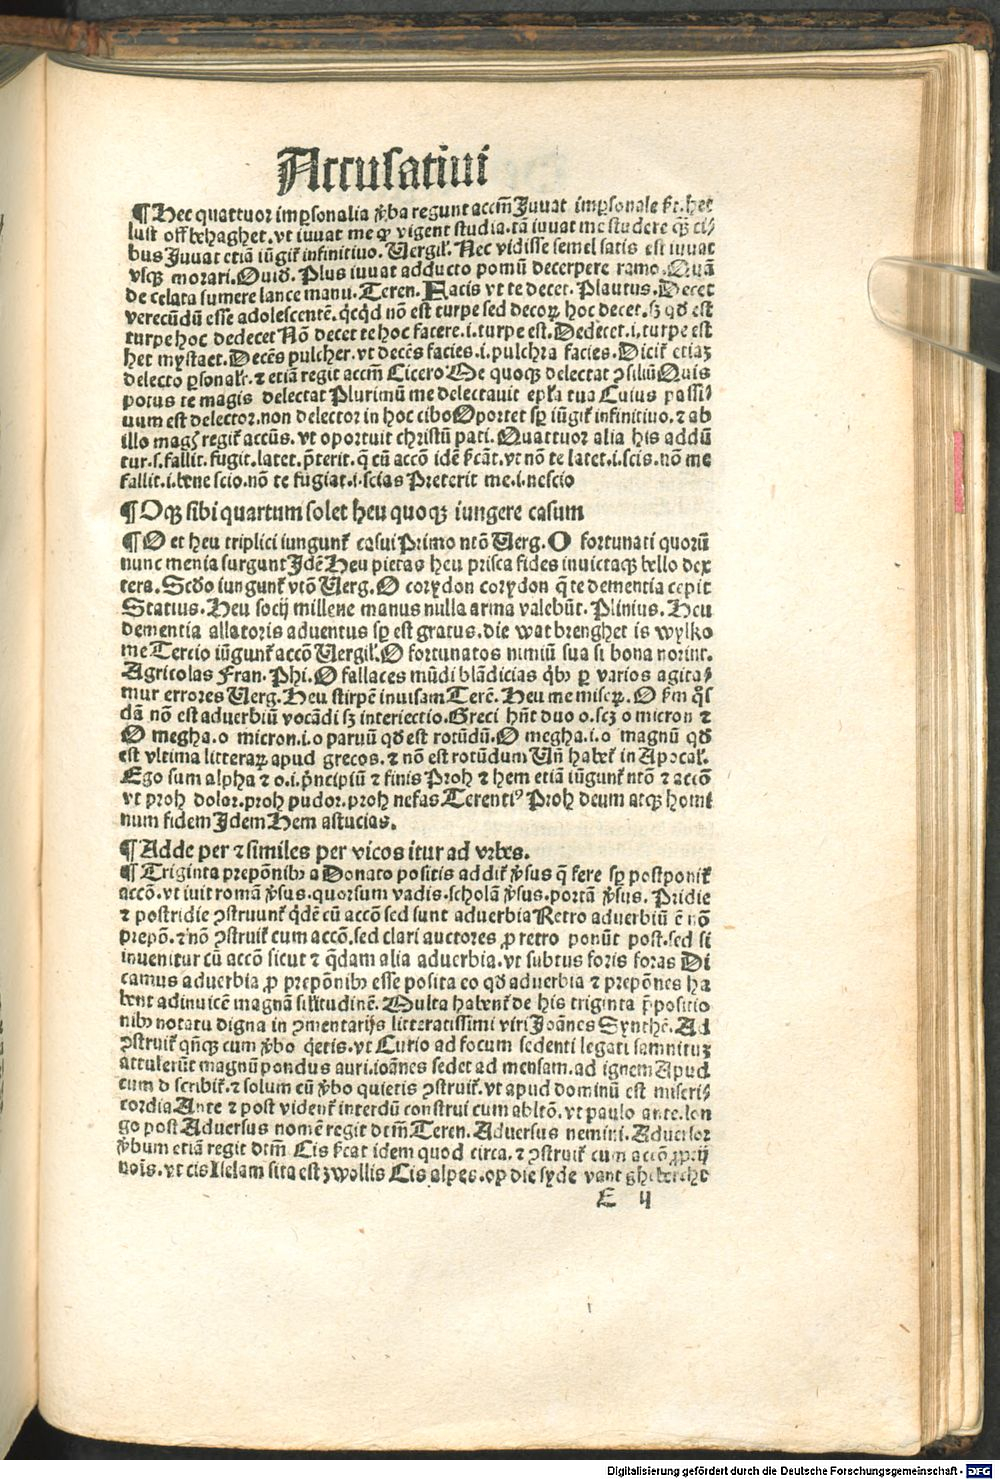 Accusatiui
¶ Hec quattuor impsonalia ỽba regunt accm̄ Juuat impsonale ẜt. het
lust off behaghet. vt iuuat me qꝫ vigent studia. tā iuuat me studere qꝫ ci⸗
bus Juuat etiā iūgit̄ infinitiuo. Vergil̄. Nec vidisse semel satis est iuuat
vsqꝫ morari. Ouid̄. Plus iuuat adducto pomū decerpere ramo. Quā
de celata sumere lance manu. Teren. Facis vt te decet. Plautus. Decet
verecūdū esse adolescentē. qͥcqͥd nō est turpe sed decoꝝ hoc decet. sꝫ qd̄ est
turpe hoc dedecet Nō decet te hoc facere. i. turpe est. Dedecet. i. turpe est
het mystaet. Decēs pulcher. vt decēs facies. i. pulchra facies. Dicit̄ etiaꝫ
delecto ꝑsonal̄r. ⁊ etiā regit accm̄ Cicero Me quoqꝫ delectat ꝯsiliū Quis
potus te magis delectat Plurimū me delectauit epl̄a tua Cuius passi⸗
uum est delector. non delector in hoc cibo Oportet sꝑ iūgit̄ infinitiuo. ⁊ ab
illo magꝭ regit̄ accūs. vt oportuit christū pati. Quattuor alia his addū
tur. s. fallit. fugit. latet. p̄terit. q̄ cū accō idē ẜcāt. vt nō te latet. i. scis. nō me
fallit. i. bene scio. nō te fugiat. i. scias Preterit me. i. nescio
¶ Oqꝫ sibi quartum solet heu quoqꝫ iungere casum
¶ O et heu triplici iungunt̄ casui Primo ntō Verg. O fortunati quorū
nunc menia surgunt Idē Heu pietas heu prisca fides inuictaqꝫ bello dex
tera. Scd̄o iungunt̄ vtō Verg. O corydon corydon q̄ te dementia cepit
Statius. Heu socij millene manus nulla arma valebūt. Plinius. Heu
dementia allatoris aduentus sꝑ est gratus. die wat brenghet is wylko
me Tercio iūgunt̄ accō Vergil̄. O fortunatos nimiū sua si bona norint.
Agricolas Fran. Phi. O fallaces mūdi blādicias qͥbꝫ ꝑ varios agita⸗
mur errores Verg. Heu stirpē inuisam Terē. Heu me miseꝝ. O ẜm qͦs
dā nō est aduerbiū vocādi sꝫ interiectio. Greci hn̄t duo o. scꝫ o micron ⁊
O megha. o micron. i. o paruū qd̄ est rotūdū. O megha. i. o magnū qd̄
est vltima litteraꝝ apud grecos. ⁊ nō est rotūdum Vn̄ habet̄ in Apocal̄.
Ego sum alpha ⁊ o. i. p̄ncipiū ⁊ finis Proh ⁊ hem etiā iūgunt̄ ntō ⁊ accō
vt proh dolor. proh pudor. proh nefas Terentiꝰ Proh deum atqꝫ homi
num fidem Idem Hem astucias.
¶ Adde per ⁊ similes per vicos itur ad vrbes.
¶ Triginta prepōnibꝫ a Donato positis addit̄ ỽsus q̄ fere sꝑ postponit̄
accō. vt iuit romā ỽsus. quorsum vadis. scholā ỽsus. portā ỽsus. Pridie
⁊ postridie ꝯstruunt̄ qͥdē cū accō sed sunt aduerbia Retro aduerbiū ē nō
prepō. ⁊ nō ꝯstruit̄ cum accō. sed clari auctores ꝓ retro ponūt post. sed si
inuenitur cū accō sicut ⁊ q̄dam alia aduerbia. vt subtus foris foras Di
camus aduerbia ꝓ prepōnibꝫ esse posita eo qd̄ aduerbia ⁊ prepōnes ha
bent adinuicē magnā sil̄itudinē. Multa habent̄ de his triginta p̄positio
nibꝫ notatu digna in ꝯmentarijs litteratissimi viri Joānes Synthē. Ad
ꝯstruit̄ qn̄qꝫ cum ỽbo qͥetis. vt Curio ad focum sedenti legati samnituꝫ
attulerūt magnū pondus auri. ioānes sedet ad mensam. ad ignem Apud
cum d scribit̄. ⁊ solum cū ỽbo quietis ꝯstruit̄. vt apud dominū est miseri⸗
cordia Ante ⁊ post vident̄ interdū construi cum abltō. vt paulo ante. lon
go post Aduersus nomē regit dtm̄ Teren. Aduersus nemini. Aduersor
ỽbum etiā regit dtm̄ Cis ẜcat idem quod circa. ⁊ ꝯstruit̄ cum accō ꝓprij
nōis. vt cis Iselam sita est zwollis Cis alpes. op die syde vant gheberchte
E ij
Digitalisierung gefördert durch die Deutsche Forschungsgemeinschaft - DFG